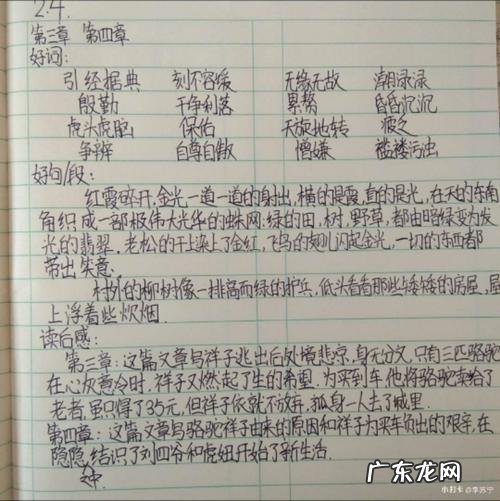 2.4.
第三章 第四章
好词:
引经据典 刻不容缓 无缘无故 潮渌渌
殷勤 干净利落 累赘 昏昏沉沉
虎头虎脑 保佑 天旋地转 疲乏
争辩 自尊自傲 憎嫌 褴褛污浊
好句/段:
红霞碎开,金光一道一道的射出,横的是霞,直的是光,在天的东南
角织成一部极伟大光华的蛛网:绿的田,树,野草,都由暗绿变为发
光的翡翠。老松的干上染上了金红,飞鸟的翅儿闪起金光,一切的东西都
带出笑意。
村外的柳树像一排高而绿的护兵,低头看着那些矮矮的房屋,屋
上浮着些炊烟.
读后感:
第三章:这篇文章写祥子逃出后处境悲凉,身无分文,只有三匹骆驼
在心灰意冷时,祥子又燃起了生的希望.为买到车,他将骆驼卖给了
老者,虽只得了35元,但祥子依就不放弃,孤身一人去了城里.
第四章:这篇文章写骆驼祥子由来的原因和祥子为买车负出的艰辛,在
隐隐,结识了刘四爷和虎妞开始了新生活.
广东龙网
小打卡 @李苏宁